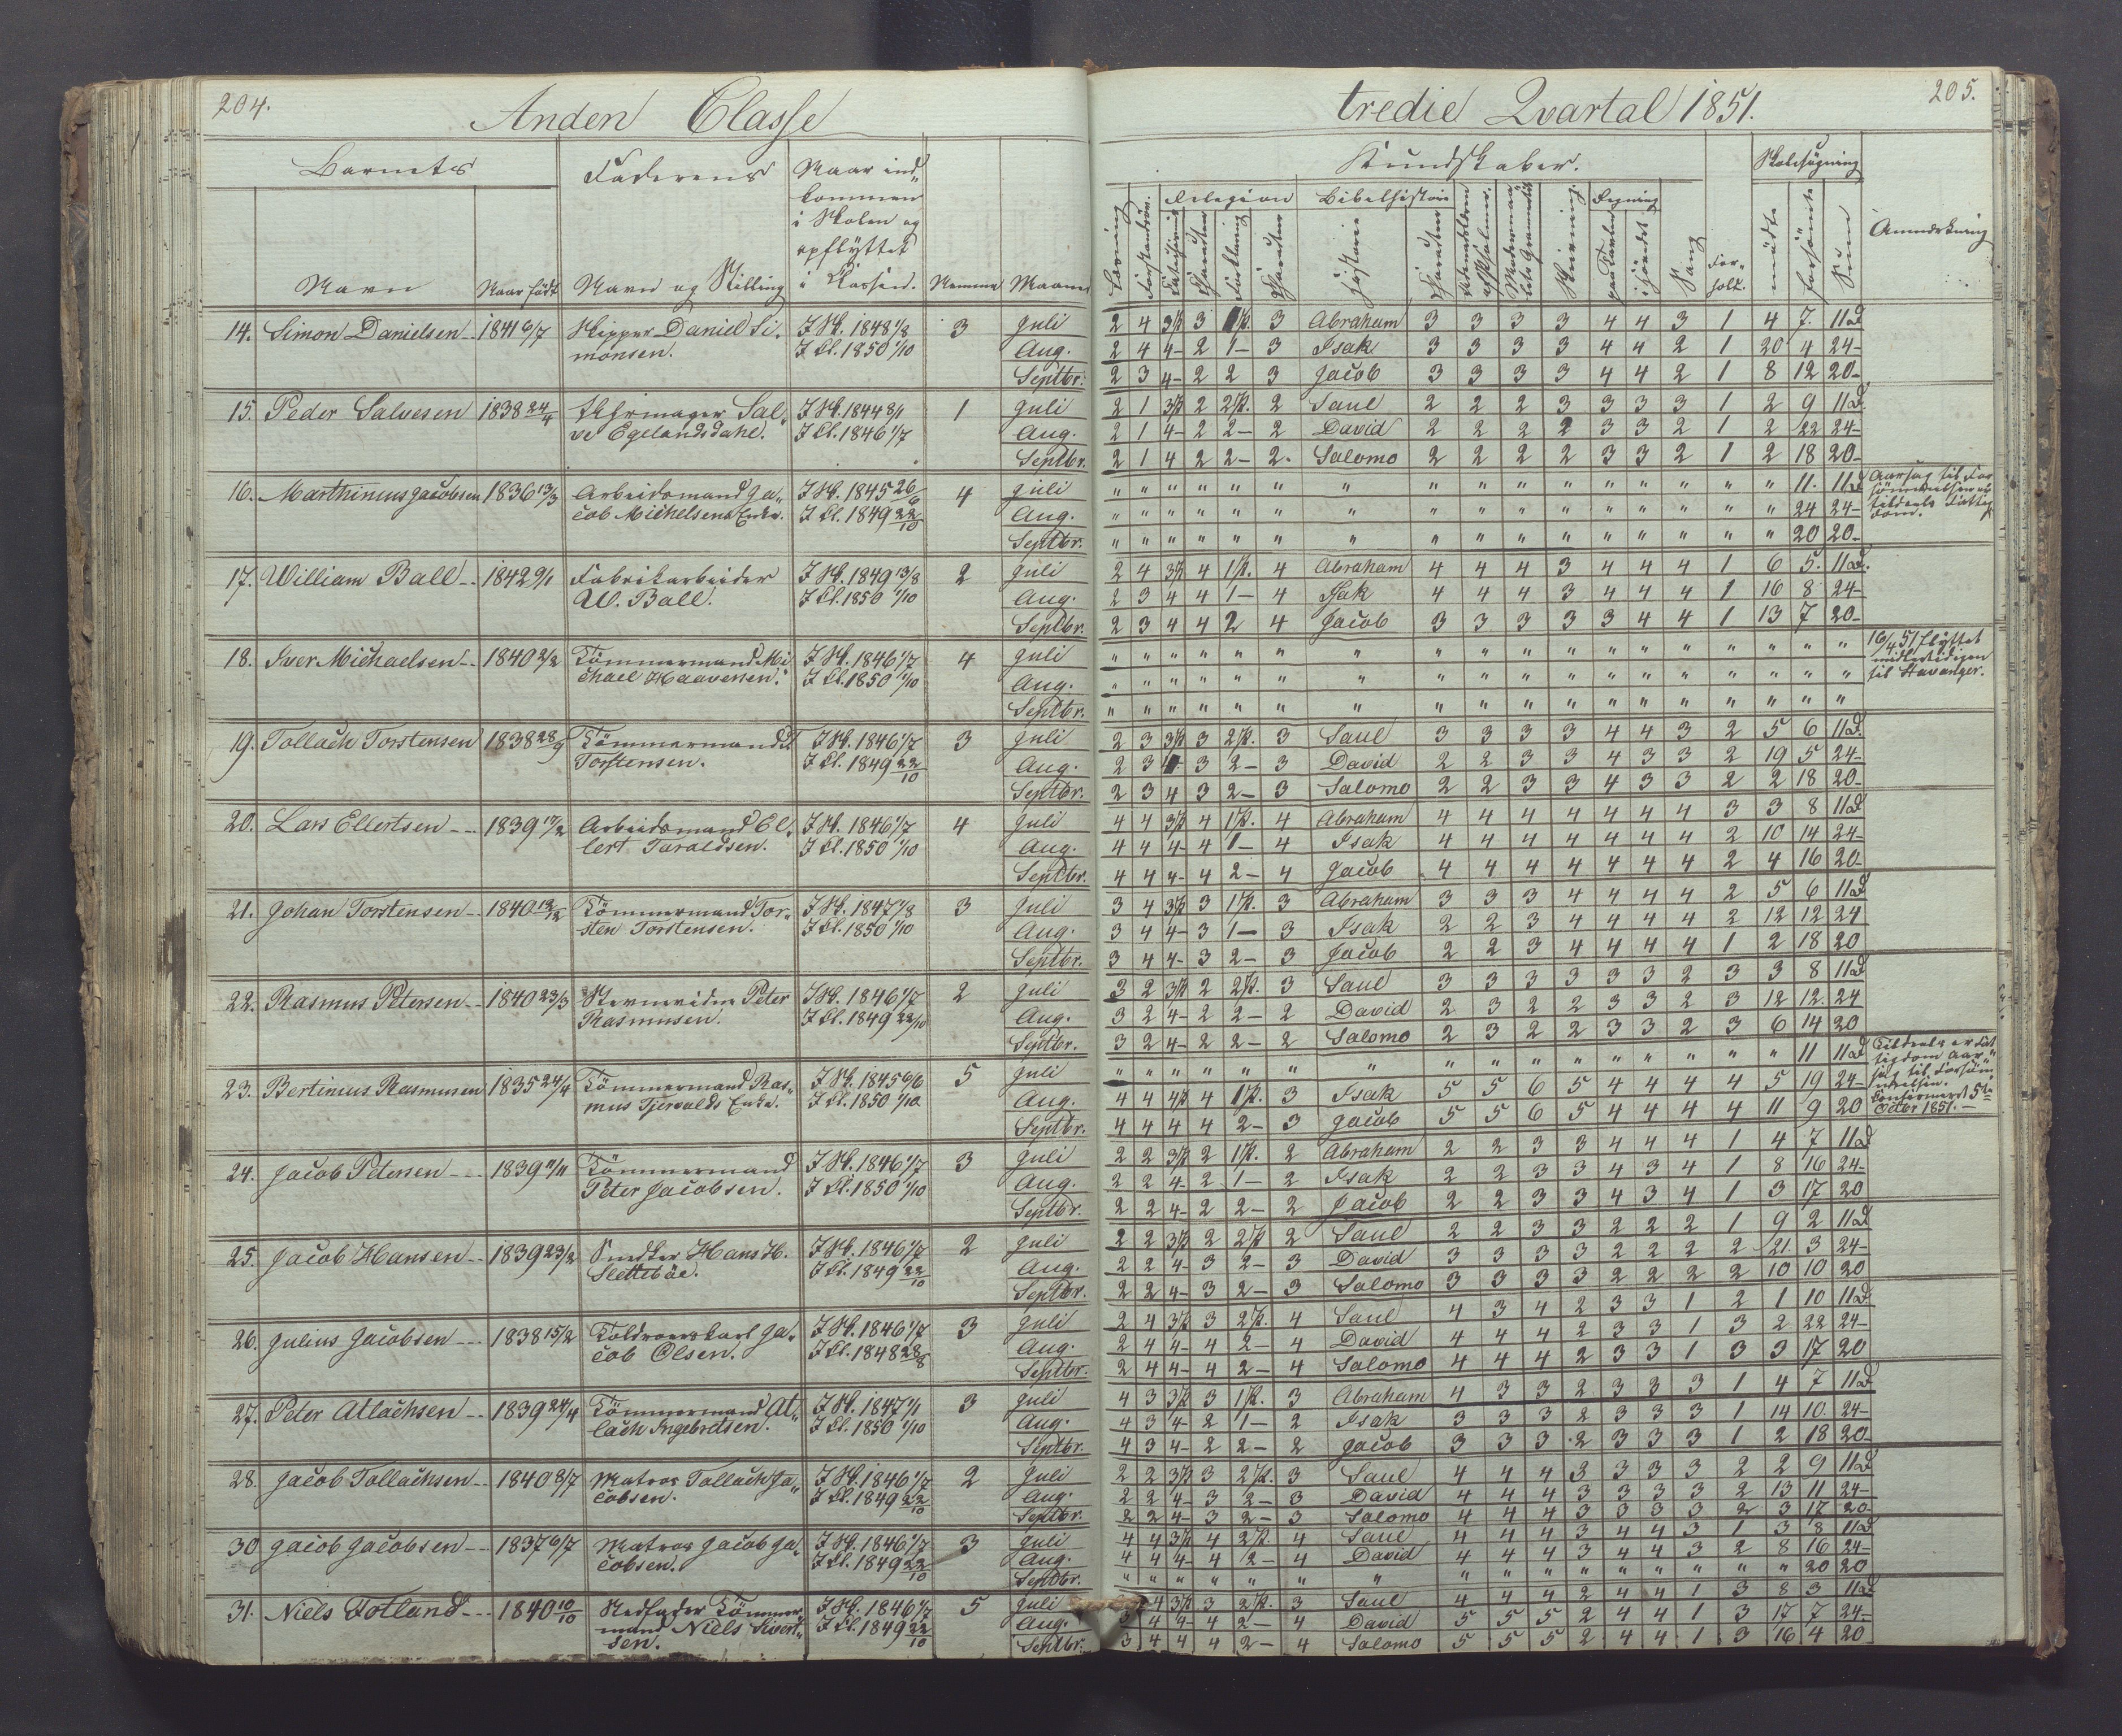 204.
Anden Classe
tredie Qvartal 1851.
205.
Barnets
Faderens
Naar ind-
kommen
i Skolen og
opflyttet
i Classen.
Navn
Naar født
Navn og Stilling
Numer
Maaned
Kundskaber.
Skolesøgning
Læsning
Religion
Bibelhistorie
Regning
Historie
Skrivning
Sang
For-
hold.
mødte
forsømte
Sum
Anmærkning
14. Simon Danielsen 1841 6/7 Skipper Daniel Si- I Sk. 1848 1/8 3 Juli 2 4 3 Abraham 3 3 3 3 4 4 3 1 4 7. 11 D
monsen. I Cl. 1850 1/10 Aug. 2 4 4 2 1 3 Isak 3 3 3 3 4 4 2 1 20 4 24
Septbr. 2 3 4 2 2 3 Jacob 3 3 3 3 4 4 2 1 8 12 20
15. Peder Salvesen 1838 24/4 Sal- I Sk. 1844 8/1 1 Juli 2 1 2 2 Saul 2 2 2 3 3 3 3 1 2 9 11 D.
ve Egelandsdahl. I Cl. 1846 1/7 Aug. 2 1 4 2 2 2 David 2 2 2 2 3 3 2 1 2 22 24
Septbr. 2 1 4 2 2 2 Salomo 2 2 2 2 3 3 2 1 2 18 20
16. Marthinius Jacobsen 1836 13/3 Arbeidsmand Ja- I Sk. 1845 26/6 4 Juli " " " " " " " " " " " " " " " " 11. 11 D Aarsag til For-
cob Michelsens Enke. I Cl. 1849 22/10 Aug. " " " " " " " " " " " " " " " " 24 24 sømmelsen er tildeels Fattig-
Septbr. " " " " " " " " " " " " " " " " 20 20 dom.
17. William Ball 1842 9/1 Fabrikarbeider I Sk. 1849 13/8 2 Juli 2 4 4 4 Abraham 4 4 4 3 4 4 4 1 6 5. 11 D.
W. Ball. I Cl. 1850 1/10 Aug. 2 3 4 4 1 4 Isak 4 4 4 3 4 4 4 1 16 8 24
Septbr. 2 3 4 4 2 4 Jacob 3 3 3 3 3 4 4 1 13 7 20
18. Iver Michaelsen 1840 2/2 Tømmermand Mi- I Sk. 1846 1/7 4 Juli " " " " " " " " " " " " " " " " " " 16/4 51 flyttet
chael Haaversen. I Cl. 1850 1/10 Aug. " " " " " " " " " " " " " " " " " " midlertidigen
til Stavanger.
Septbr. " " " " " " " " " " " " " " " " " "
19. Tollach Torstensen 1838 28/9 Tømmermand T. I Sk. 1846 1/7 3 Juli 2 3 3 3 Saul 3 3 3 3 4 4 3 2 5 6 11 D.
Torstensen. I Cl. 1849 22/10 Aug. 2 3 3 2 3 David 2 2 3 3 4 3 3 2 19 5 24
Septbr. 2 3 4 3 2 3 Salomo 2 2 3 3 4 3 3 2 2 18 20
20. Lars Ellertsen 1839 17/2 Arbeidsmand El- I Sk. 1846 1/7 4 Juli 4 4 4 4 Abraham 4 4 4 4 4 4 4 3 3 8 11 D
lert Taraldsen. I Cl. 1850 1/10 Aug. 4 4 4 4 1 4 Isak 4 4 4 4 4 4 4 2 10 14 24
Septbr. 4 4 4 4 2 4 Jacob 4 4 4 4 4 4 4 2 4 16 20
21. Johan Torstensen 1840 12/12 Tømmermand Tor- I Sk. 1847 1/8 3 Juli 3 4 3 3 Abraham 3 3 3 4 4 4 4 2 5 6 11 D
sten Torstensen. I Cl. 1850 1/10 Aug. 3 4 4 3 1 3 Isak 2 2 3 4 4 4 4 2 12 12 24
Septbr. 3 4 4 3 2 3 Jacob 2 2 3 4 4 4 4 1 2 18 20
22. Rasmus Petersen 1840 23/3 Peter I Sk. 1846 1/7 2 Juli 3 2 2 3 Saul 3 3 3 3 3 3 2 3 3 8 11 D
Rasmussen. I Cl. 1849 22/10 Aug. 3 2 4 2 2 2 David 2 3 2 2 3 3 2 3 12 12 24
Septbr. 3 2 4 2 2 2 Salomo 2 3 2 2 3 3 2 3 6 14 20
23. Bertinius Rasmussen 1835 24/4 Tømmermand Ras- I Sk. 1845 6/6 5 Juli " " " " " " " " " " " " " " " " 11 11 D Tildeels er Fat-
tigdom Aar-
mus Tjervalds Enke. I Cl. 1850 1/10 Aug. 4 4 4 3 Isak 5 5 6 5 4 4 4 4 5 19 24 sag til Forsøm-
melsen.
Septbr. 4 4 4 4 2 3 Jacob 5 5 6 5 4 4 4 4 11 9 20 Confirmeret 5te
Octbr 1851.
24. Jacob Petersen 1839 11/11 Tømmermand I Sk. 1846 1/7 3 Juli 2 2 2 2 Abraham 2 2 3 3 4 4 4 1 4 7 11 D
Peter Jacobsen. I Cl. 1850 1/10 Aug. 2 2 4 2 1 2 Isak 2 2 3 3 4 3 4 1 8 16 24
Septbr. 2 2 4 2 2 2 Jacob 2 2 3 3 4 3 4 1 3 17 20
25. Jacob Hansen 1839 23/2 Snedker Hans H. I Sk. 1846 1/7 2 Juli 2 2 2 2 Saul 2 2 3 3 2 2 2 1 9 2 11 D
Slettebøe. I Cl. 1849 22/10 Aug. 2 2 4 3 2 3 David 3 3 3 3 2 2 2 2 21. 3 24
Septbr. 2 2 4 3 2 3 Salomo 3 3 3 3 2 2 2 2 10 10 20
26. Julius Jacobsen 1838 15/2 Toldroerskarl Ja- I Sk. 1846 1/7 3 Juli 2 4 3 4 Saul 4 3 4 2 3 3 1 2 1 10 11 D.
cob Olsen. I Cl. 1848 28/8 Aug. 2 4 4 4 2 4 David 4 4 4 2 3 3 1 3 2 22 24
Septbr. 2 4 4 4 2 4 Salomo 4 4 4 2 3 3 1 3 3 17 20
27. Peter Atlachsen 1839 24/4 Tømmermand At- I Sk. 1847 1/1 3 Juli 4 3 3 3 Abraham 4 3 3 2 3 3 3 1 4 7 11 D
lach Ingebretsen. I Cl. 1850 1/10 Aug. 4 3 4 2 1 2 Isak 3 3 3 2 3 3 3 1 14 10 24
Septbr. 4 3 4 2 2 2 Jacob 3 3 3 2 3 3 3 1 2 18 20
28. Jacob Tollachsen 1840 8/7 Matros Tollach Ja- I Sk. 1846 1/7 2 Juli 2 2 3 3 Saul 4 4 4 3 3 3 3 2 2 9 11 D
cobsen. I Cl. 1849 22/10 Aug. 2 2 4 3 2 3 David 4 4 4 3 3 3 3 2 13 11 24
Septbr. 2 2 4 3 2 3 Salomo 4 4 4 3 3 3 3 2 3 17 20
30. Jacob Jacobsen 1837 6/7 Matros Jacob Ja- I Sk. 1846 1/7 3 Juli 4 4 4 4 Saul 4 4 4 3 4 4 3 1 3 8 11 D
cobsen. I Cl. 1849 22/10 Aug. 4 4 4 4 2 4 David 4 4 4 3 4 4 3 2 8 16 24
Septbr. " " " " " " " " " " " " " " " " 20 20
31. Niels Fotland 1840 10/10 Stedfader Tømmer- I Sk. 1846 1/7 5 Juli 4 3 3 Saul 4 4 4 2 4 4 1 3 8 3 11 D
mand Niels Sivert- I Cl. 1849 22/10 Aug. 3 4 4 4 2 4 David 5 5 5 2 4 4 1 3 17 7 24
sen. Septbr. 3 4 4 4 2 4 Salomo 5 5 5 2 4 4 1 3 16 4 20